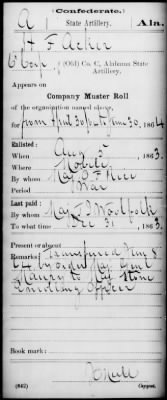 (Confederate.)
A State Artillery. Ala.
H F Acker
Corp, (Old) Co. C, Alabama State
Artillery.
Appears on
Company Muster Roll
of the organization named above,
for from April 30 to June 30, 1864
Enlisted:
When Aug 5, 1863.
Where Mobile
By whom Maj
Period War
Last paid:
By whom Maj
To what time Dec 31, 1863.
Present or absent
Remarks: Transferred
64 by order Maj Genl
Maury to Maj Stone
Enrolling Officer
Book mark:
(642) Copyist.